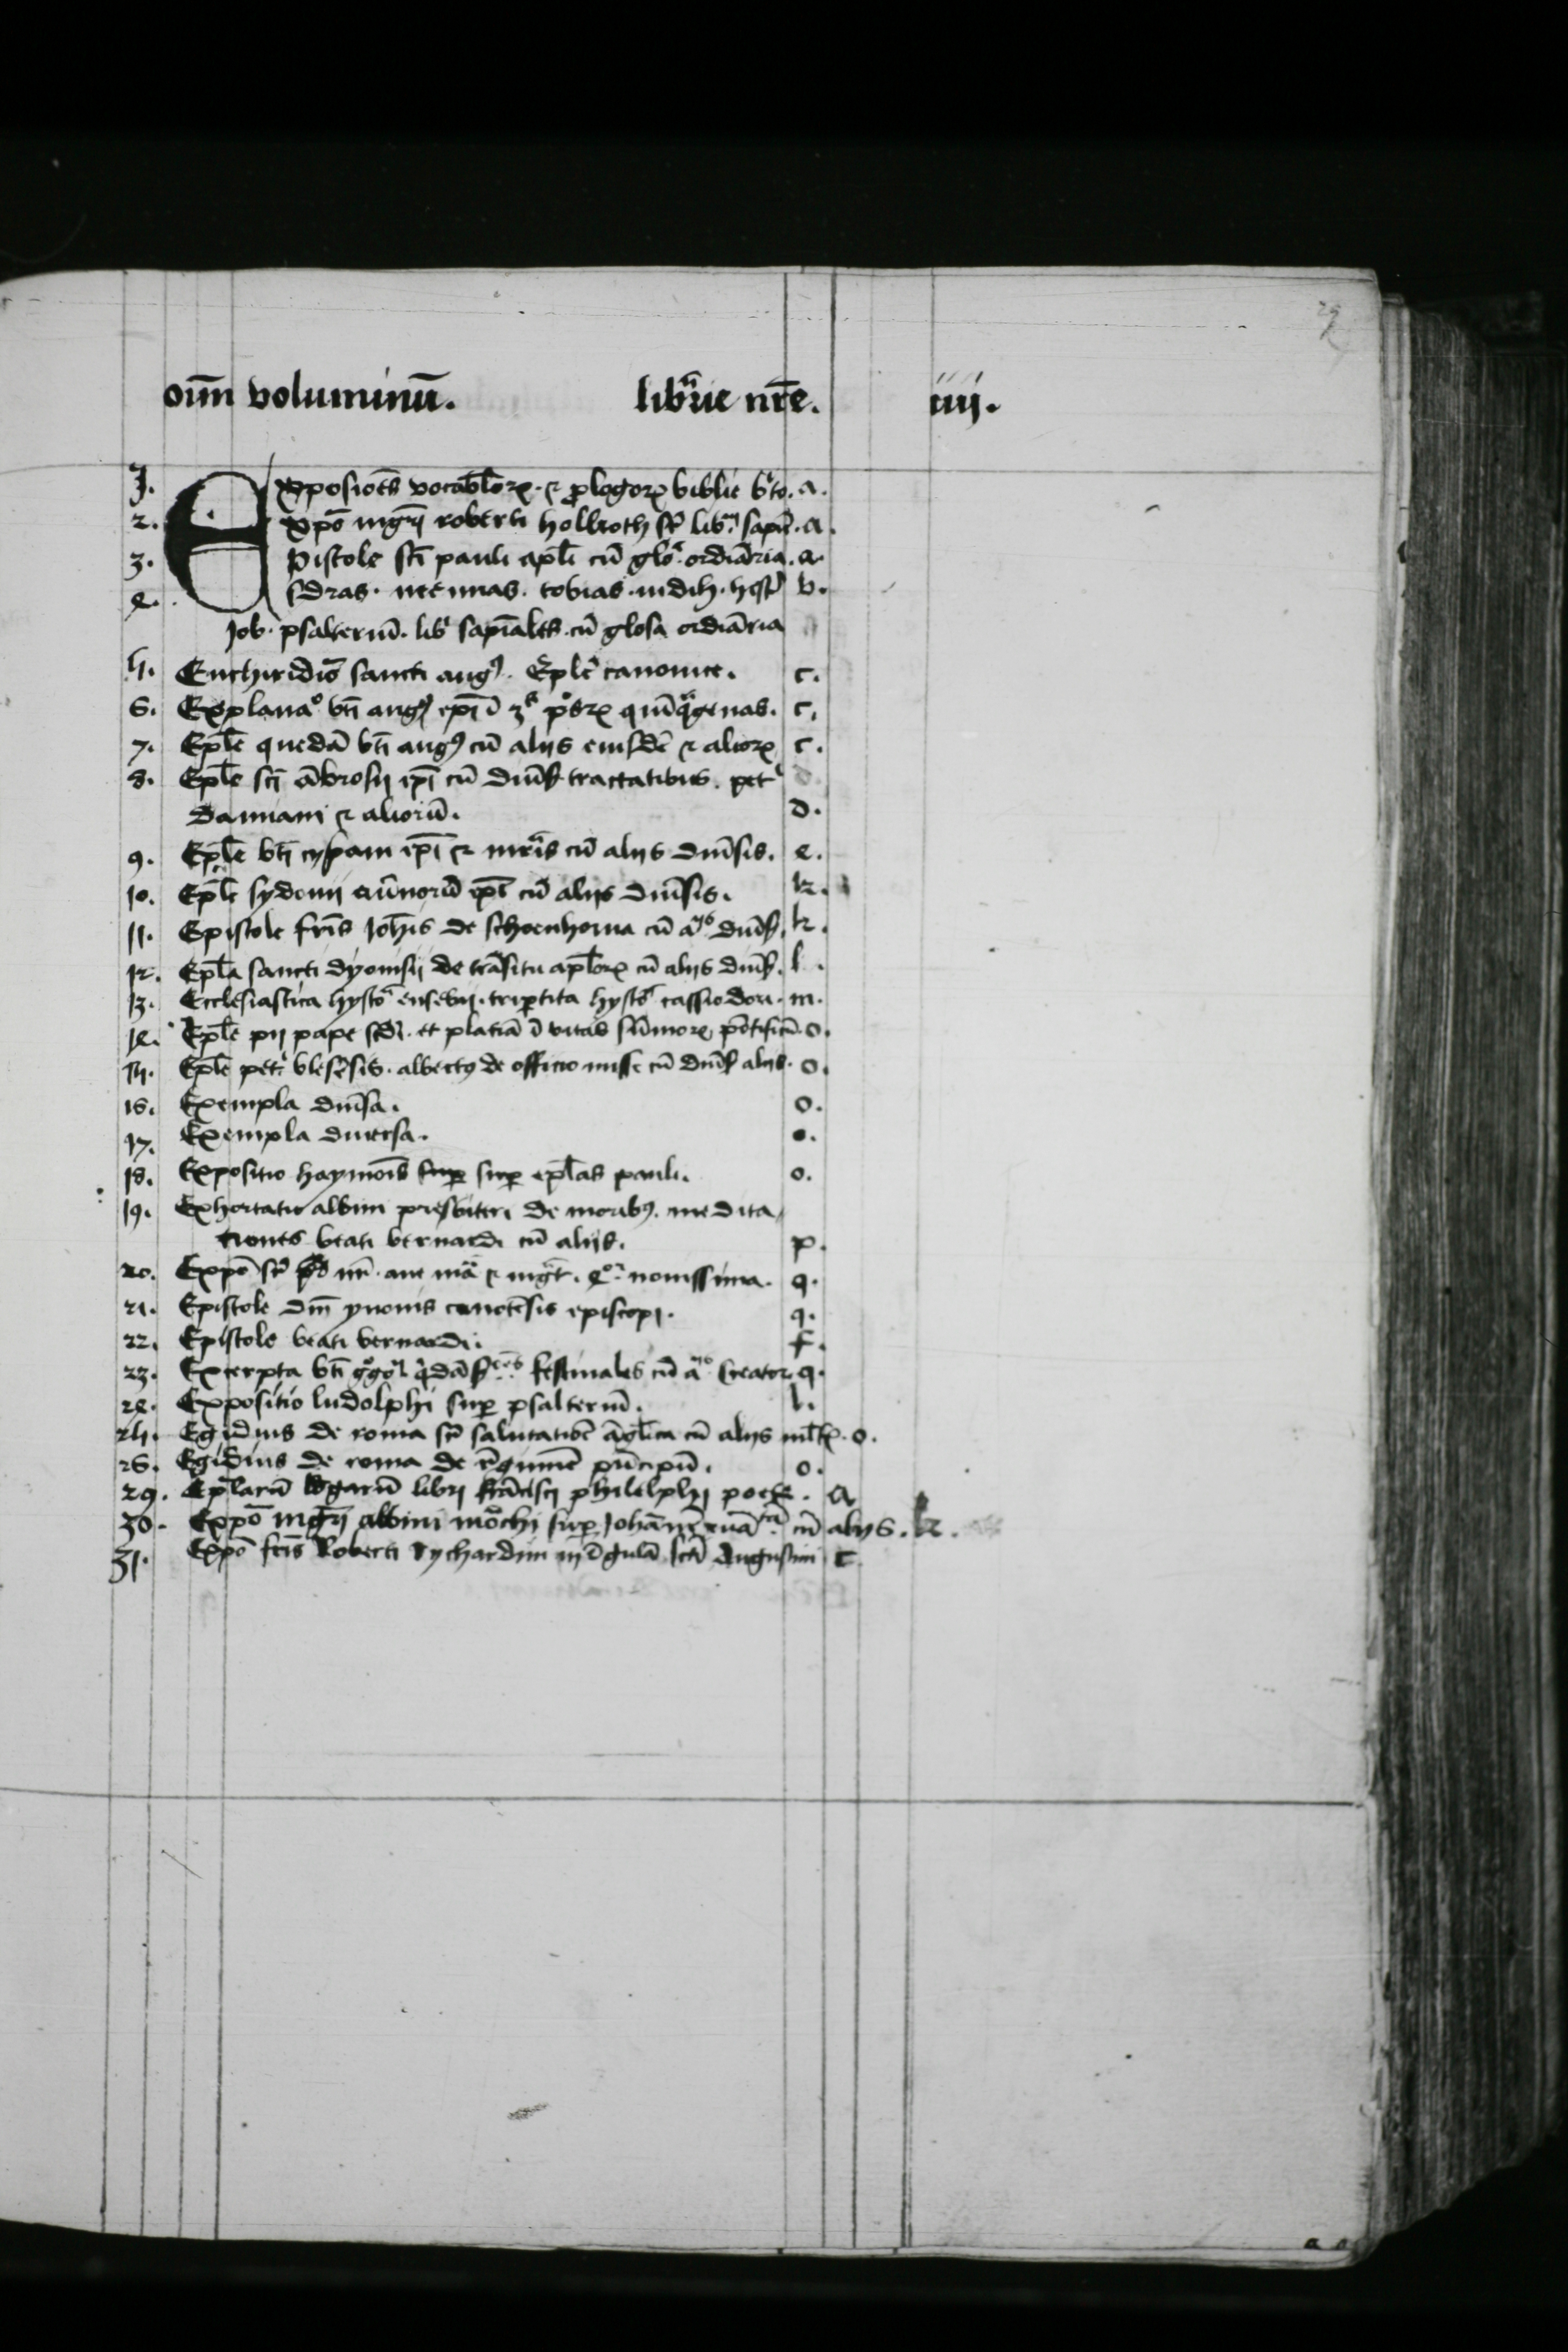 oīm voluminū. librarie nr̄e. iiij.
1. Exposiciōes vocabl̄oꝝ · ⁊ ꝓlogoꝝ biblie . a.
2. Expō mgr̄i roberti holkoth sr̄ libꝝ sapiē . a.
3. Epistole sc̄i pauli apl̄i cū glo. ordiāria . a.
4. Esdras . neemias . tobias . iudih . hest͛ b.
Job . psalteriū . lib͛ sapīales . cū glosa ordiāria
5. Enchiridiō sancti augꝰ . Epl̄e canonice . c.
6. Explanaº bt̄i augꝰ ep̄i ī 3ª quīqᵃgenas . c.
7. Epl̄e quedā bt̄i augꝰ cū alijs eiusdē ⁊ alioꝝ c.
8. Epl̄e sc̄i ābrosij ep̄i cū diūs tractatibus . pet͛
damiani ⁊ alioriū . d.
9. Epl̄e bt̄i cyp̄ani ep̄i ⁊ mr̄is cū alijs diūsis . e.
10. Epl̄e sydonij aūnorū ep̄i cū alijs diūsis . k.
11. Epistole fr̄is Joh̄is de schoenhouia cū aˡⁱʲˢ diūs . k.
12. Epl̄a sancti dyonisij de trāsitu apl̄oꝝ cū alijs diūs . l.
13. Ecclesiastica hystoᵃ eusebij . trip̄tita hystoᵃ cassiodori . m.
14. Epl̄e pij pape scd̄i . et platinā ī vitas sūmoꝝ pōtificū . o.
15. Epl̄e pet͛ blesēsis . albertꝰ de officio misse cū diūs alijs . o.
16. Exempla diūsa . o.
17. Exempla diuersa . o.
18. Expositio haymōis sup̱ sup̱ epl̄as pauli . o.
19. Exhortatio albini presbiteri de moribꝰ . medita
tiones beati bernardi cū alijs . p.
20. Expō sr̄ pr̄ nr̄ . aue mᵃ ⁊ mgᵗ . 4ºʳ nouissima . q.
21. Epistole dn̄i yuonis carnotēsis episcopi . q.
22. Epistole beati bernardi . f.
23. Excerpta bt̄i gᵒgoⁱ q̄dā festiuales cū aˡⁱʲˢ Creator . q.
24. Expositio ludolphi sup̱ psalteriū . h.
25. Egidius de roma sr̄ salutatiōē āgl̄ica cū alijs ml̄tꝭ . o.
26. Egidius de roma de rēgimīe pūcipū . o.
29. Epl̄arū libri frācisci philelphij poete . a
30. Expō mgr̄i albini mōchi sup̱ Johānē euāᵗᵃ cū alijs . k.
31. Expō fr̄is Roberti Rychardini in r̄gulā sct̄i Augustini c